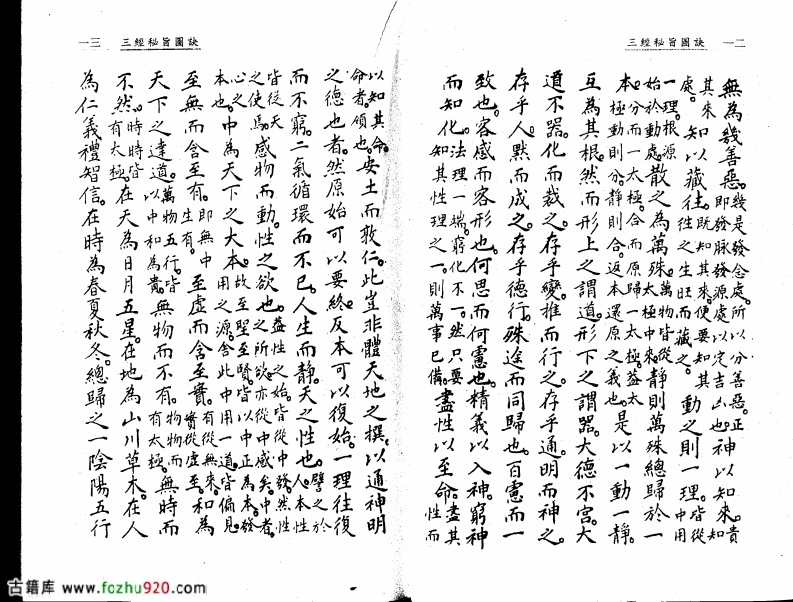 三經秘旨圖訣 一二
無為幾善惡。幾是發念處。所以分善惡。正即發脉發源處以定吉凶也。神以知來。貴
其來。知以藏往。既知其來。便要知其往之生旺而藏之。動之則一理。皆從中用
處。一理。根源始於動處。散之為萬殊。萬物皆從太極中來。靜則萬殊總歸於一
本。分而一太極。合而原歸一太極。蓋太極動則分。靜則合。返本還原之義也。是以一動一靜。
互為其根。然而形上之謂道。形下之謂器。大德不宮。大
道不器。化而裁之。存乎變。推而行之。存乎通。明而神之。
存乎人。默而成之。存乎德行。殊途而同歸也。百慮而一
致也。容感而容形也。何思而何慮也。精義以入神。窮神
而知化。法理一端。窮化不一。然只要知其性理之一。則萬事已備。盡性以至命。盡其性而
一三 三經秘旨圖訣
以知其命。命者。頌也。安土而敦仁。此豈非體天地之撰。以通神明
之德也者。然原始可以要終。反本可以復始。一理往復
而不窮。二氣循環而不已。人生而靜。天之性也。人本性譬之於
皆從天之使焉。感物而動。性之欲也。蓋性之始。皆從中發。然性之所欲。亦從中感矣。中者。
心之本也。中為天下之大本。故至聖至賢。皆以中正為本。發用之源。舍此中用一道。皆偏見。
至無而含至有。即無中生有。至虛而含至實。有從無來。實從虛至。和為
天下之達道。萬物五行。皆以中和為貴。無物而不有。物物而有太極。無時而
不然。時時皆有太極。在天為日月五星。在地為山川草木。在人
為仁義禮智信。在時為春夏秋冬。總歸之一陰陽五行
古籍库 www.fozhu920.com